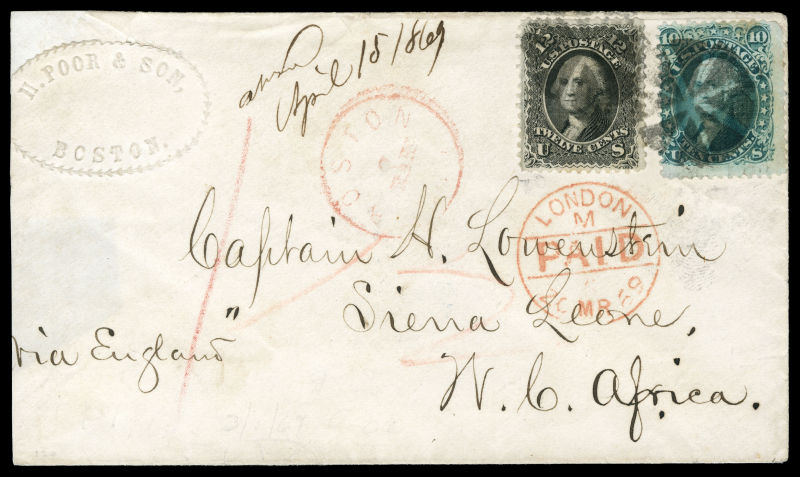 H. POOR & SON,
BOSTON.
April 15 1869
12 12
U.S. POSTAGE
TWELVE CENTS
U S
10 10
U.S. POSTAGE
TEN CENTS
U. S.
BOSTON
LONDON
M
PAID
MR 69
Captain H. Lowenstein
Sierra Leone,
W. C. Africa.
"via England"